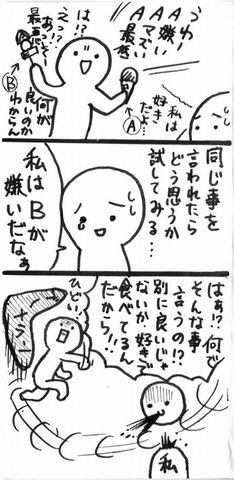 うわー
A嫌い
Aマズい
最悪
私は
好き
だよ…
A
は!?
えっ!?
最悪
何が
良いのか
わからん
B
同じ事を
言われたら
どう思うか
試してみる…
私はBが
嫌いだなぁ
はぁ!?何で
そんな事
言うの!?
別に良いじゃ
ないか好きで
食べてるん
だから!!
ひどい
私